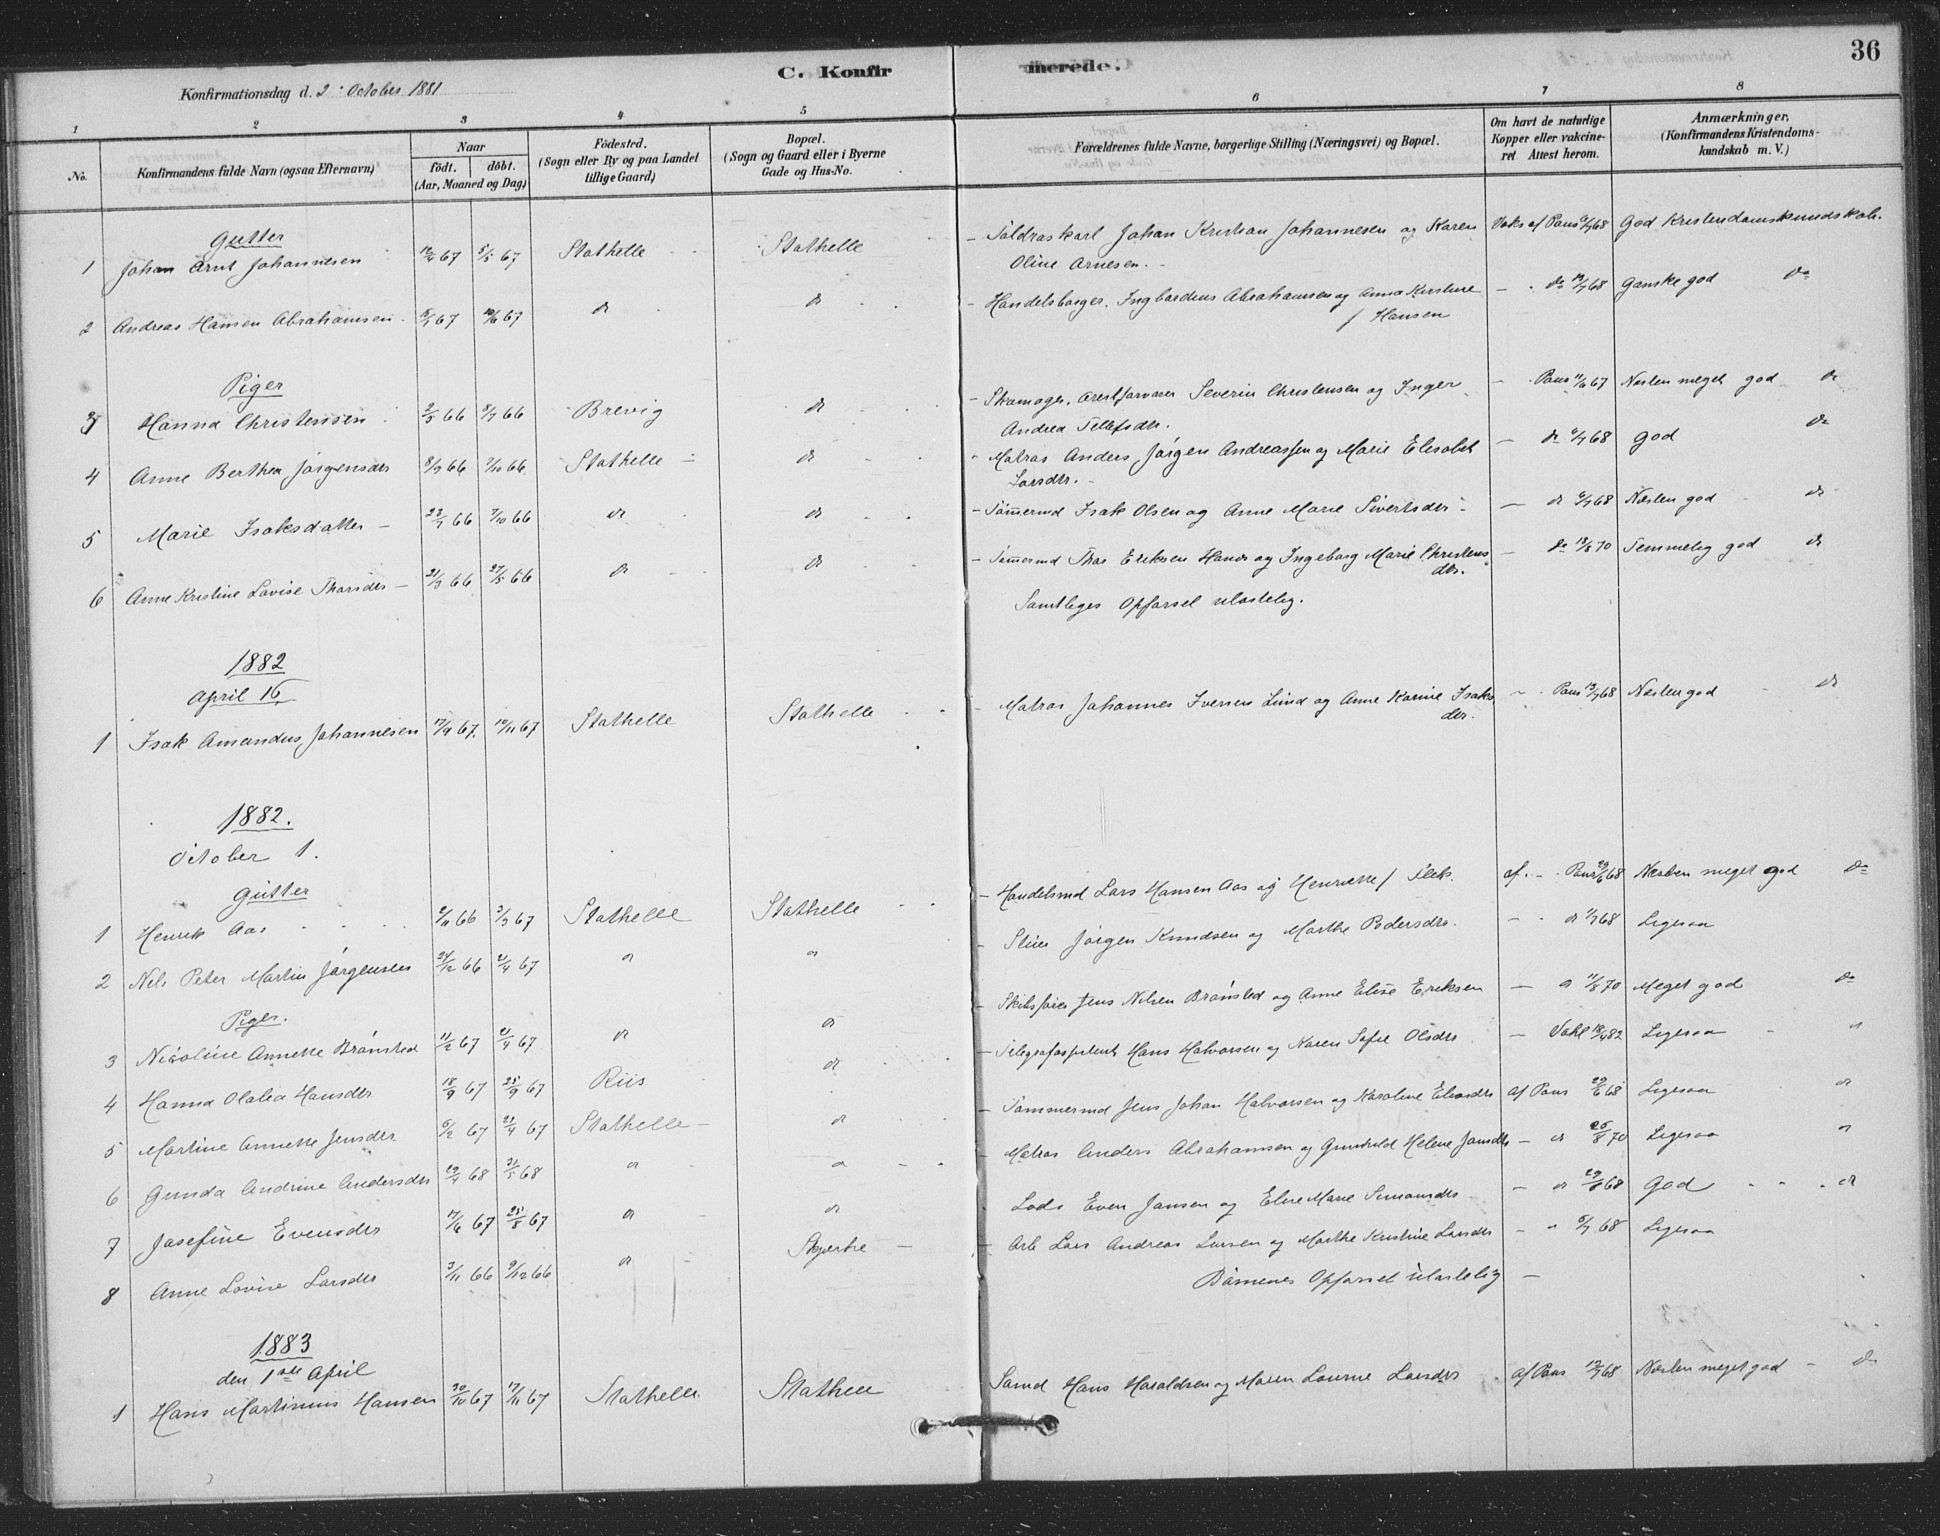 36
C. Konfirmerede.
Konfirmationsdag d. 2. October 1881
1 2 3 4 5 6 7 8
No. Konfirmandens fulde Navn (ogsaa Efternavn) Naar født. døbt. (Aar, Maaned og Dag) Fødested. (Sogn eller By og paa Landet tillige Gaard) Bopæl. (Sogn og Gaard eller i Byerne Gade og Hus-No. Forældrenes fulde Navne, borgerlige Stilling (Næringsvei) og Bopæl. Om havt de naturlige Kopper eller vakcineret. Attest herom. Anmærkninger. (Konfirmandens Kristendomskundskab m. V.)
Gutter
1 Johan Arnt Johannesen 67 5/5 67 Stathelle Stathelle Toldraskarl Johan Kristian Johannesen og Karen Vaks af Paus 68 God Kristendomskundskab.
Oline Arnesen.
2 Andreas Hansen Abrahamsen 67 67 do do Handelsborger. Abrahamsen og Anna Kirstine do 68 Ganske god do
f Hansen
Piger
3 Hanna Christensen 66 66 Brevig do Skomager, Arestforvarer Severin Christensen og Inger Paus 11/6 67 Næsten meget god do
Andrea Tellefsdtr.
4 Anne Berthea Jørgensdtr 66 7/10 66 Stathelle do Matros Anders Jørgen Andreassen og Marie Elisabet do 68 God do
Larsdtr.
5 Marie Isaksdatter 66 7/10 66 do do Tømermd Isak Olsen og Anne Marie Sivertsdtr do 68 Næsten god do
6 Anne Kristine Lovise Thorsdtr 21/3 66 27/5 66 do do Tømermd Thor Eriksen og Ingeborg Marie Christensdtr. do 70 Temmelig god do
Samtliges Opførsel ulastelig.
1882
April 16
1 Isak Amandus Johannesen 17/9 67 10/11 67 Stathelle Stathelle Matros Johannes Iversen Lund og Anne Karine Isaksdtr. Paus 68 Næsten god do
1882.
October 1.
Gutter
1 Henrik Aas 66 3/3 67 Stathelle Stathelle Handelsmd Lars Hansen Aas og Henriette f Flek. af Paus 68 Næsten meget god do
2 Nils Peter Martin Jørgensen 24/12 66 21/4 67 do do Jørgen Knudsen og Marthe Pedersdtr. do 68 Ligesaa
Piger.
3 Nicoline Annette Brønsted 11/2 67 21/4 67 do do Skibsfører Jens Nilsen Brønsted og Anne Elise Eriksen do 11/8 70 Meget god do
4 Hanna Olalia Hansdtr 18/9 67 67 Riis do Hans Halvorsen og Karen Sofie Olsdtr Vahl 82 Ligesaa
5 Martine Annette Jensdtr 67 21/4 67 Stathelle do Tømmermd Jens Johan Halvorsen og Karoline af Paus 68 Ligesaa do
6 Gunda Andrine Andersdtr 68 31/5 68 do do Matros Anders Abrahamsen og Gunhild Helene Jansdtr do 70 Ligesaa
7 Josefine Evensdtr 17/6 67 25/8 67 do do Lods Even Jansen og Else Marie Simonsdtr do 68 God do
8 Anne Lovise Larsdtr 3/11 66 9/12 66 do Arb Lars Andreas Larsen og Marthe Kristine Larsdtr 68 Ligesaa
Børnenes Opførsel ulastelig
1883
den 1ste April
1 Hans Martinius Hansen 30/10 67 17/11 67 Stathelle Stathelle Sømd Hans Haraldsen og Maren Lovine Larsdtr af Paus 68 Næsten meget god do